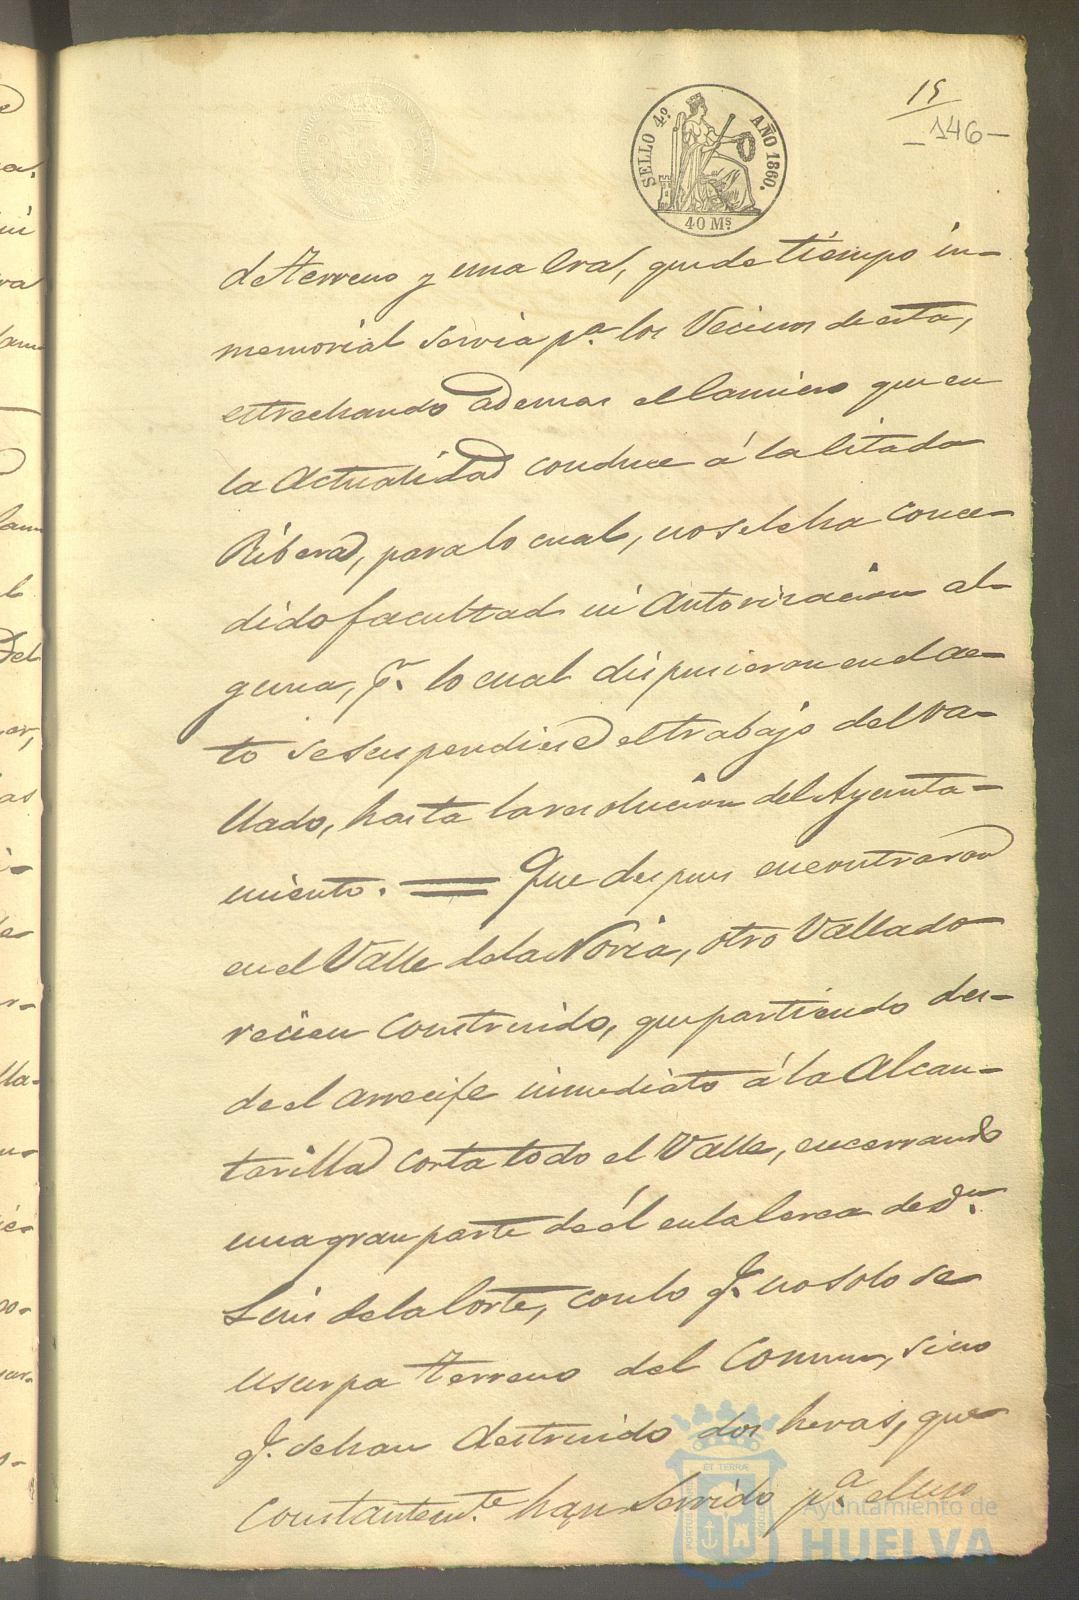 15
146
SELLO 4º. AÑO 1860.
40 Ms.
de terreno y una Era, que de tiempo in-
memorial servia pª. los Vecinos de esta,
estrechando ademas el Camino que en
la Actualidad conduce á la Citada
Ribera, para lo cual, no se le ha conce-
dido facultad ni Autorizacion al-
guna, pr. lo cual dispusieron en el ac-
to se suspendiese el trabajo del Va-
llado, hasta la resolucion del Ayunta-
miento. = Que despues encontraron
en el Valle de la Noria, otro Vallado
recien Construido, que partiendo des-
de el arrecife inmediato á la Alcan-
tarilla corta todo el Valle, encerrando
una gran parte de él en la Cerca de Dn.
Luis de la Corte, con lo q. no solo se
usurpa terreno del Comun, sino
q. se han destruido dos heras, que
Constantemte. han servido pª. el uso
ET TERRÆ
Ayuntamiento de
HUELVA